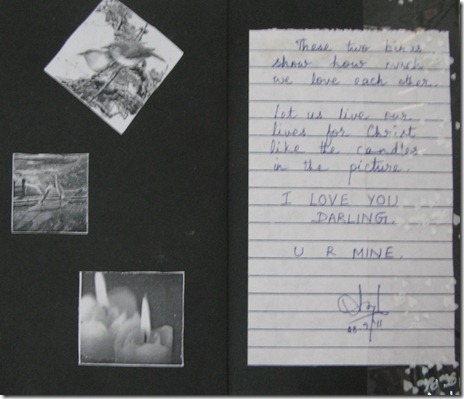 These two birds
show how much
we love each other.
Let us live our
lives for Christ
like the candles
in the picture.
I LOVE YOU
DARLING.
U R MINE.